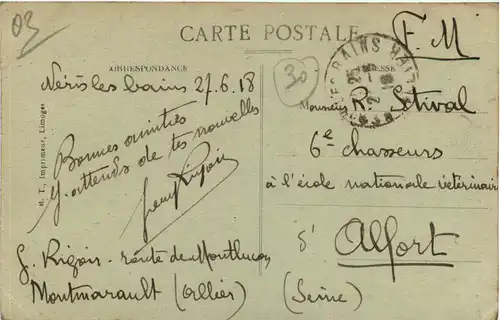 03
CARTE POSTALE
F. M
CORRESPONDANCE
30
Néris les bains 27.6.18
Bonnes amitiés
J'attends de tes nouvelles
Jean Rigoir
J. Rigoir - route de Montlucon
Montmarault (Allier)
M. T., Imprimeur, Limoges
Monsieur R. Sctival
6e chasseurs
à l'école nationale vétérinaire
d'
Alfort
(Seine)